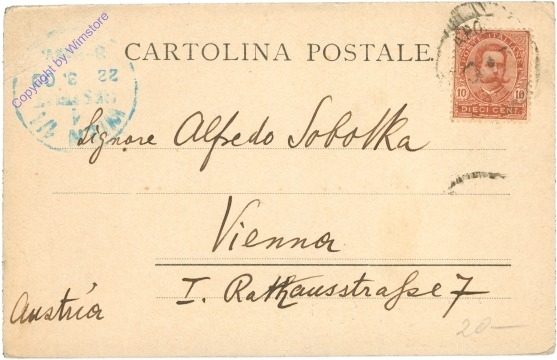 Copyright by Wimstore
CARTOLINA POSTALE.
10 10
DIECI CENT.
WIEN
22. 3. 0
Signore Alfredo Sobotka
Vienna
I. Rathausstraße 7
Austria
20–